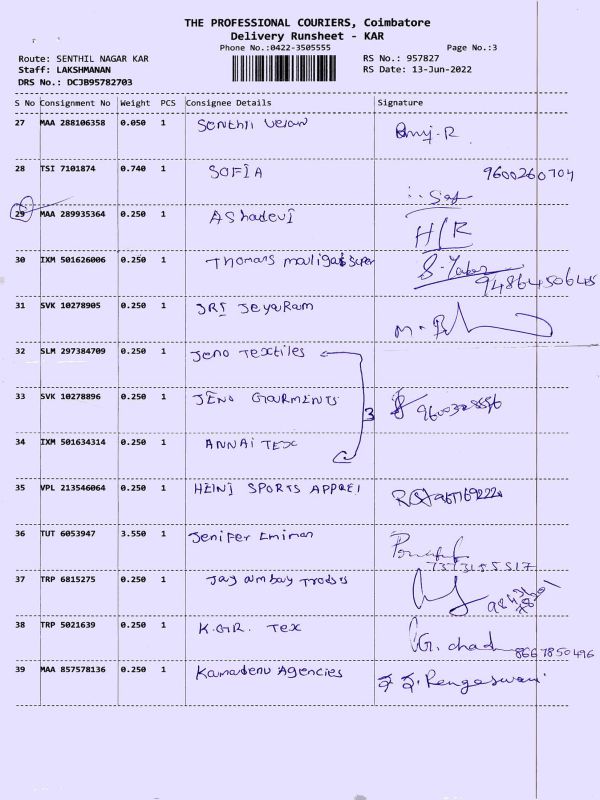 THE PROFESSIONAL COURIERS, Coimbatore
Delivery Runsheet - KAR
Phone No.:0422-3505555 Page No.:3
Route: SENTHIL NAGAR KAR RS No.: 957827
Staff: LAKSHMANAN RS Date: 13-Jun-2022
DRS No.: DCJB95782703
S No Consignment No Weight PCS Consignee Details Signature
27 MAA 288106358 0.050 1 Senthil
28 TSI 7101874 0.740 1 SOFIA 9600260704
29 MAA 289935364 0.250 1 Ashadevi H/R
30 IXM 501626006 0.250 1 Thomas maligai Super 9486450645
31 SVK 10278905 0.250 1 SRI JeyaRam
32 SLM 297384709 0.250 1 Jeno Textiles
33 SVK 10278896 0.250 1 JENO GARMENTS 3
34 IXM 501634314 0.250 1 ANNAI TEX
35 VPL 213546064 0.250 1 HEINI SPORTS
36 TUT 6053947 3.550 1 Jenifer 7373155517
37 TRP 6815275 0.250 1 Jay ambay
38 TRP 5021639 0.250 1 K.G.R. Tex 8667850496
39 MAA 857578136 0.250 1 Kamadenu Agencies